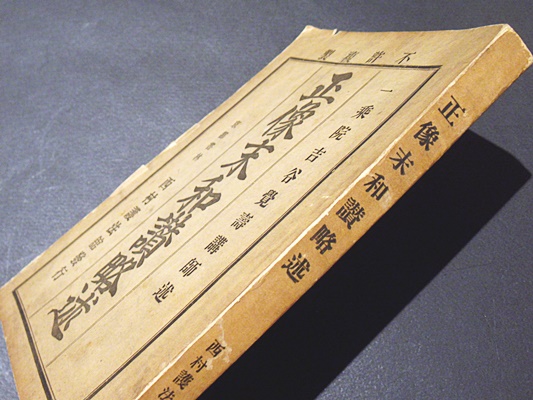 不許複製
一乘院吉谷覺壽講師述
正像末和讃略述
西村護法館發行
正像末和讃略述
西村護法